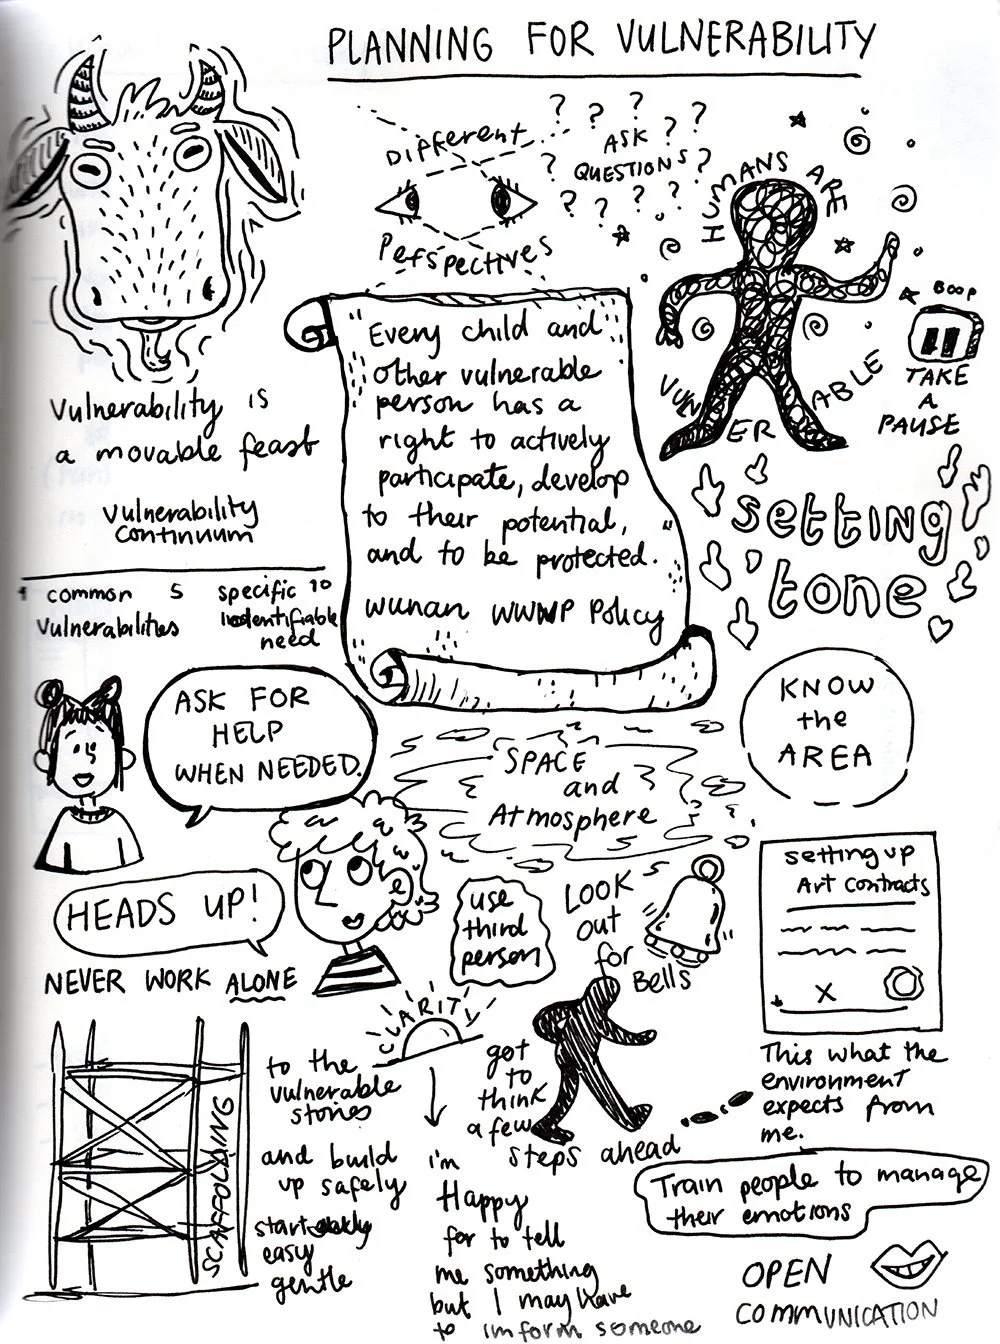 PLANNING FOR VULNERABILITY
Different
Perspectives
? ? ? ?
ASK
QUESTIONS
? ? ? ? ? ? ?
HUMANS ARE
VULNERABLE
BOOP
TAKE
A
PAUSE
Vulnerability is
a movable feast
Vulnerability
Continuum
1 common 5 specific 10
Vulnerabilities identifiable
need
Every child and
other vulnerable
person has a
right to actively
participate, develop
to their potential,
and to be protected. "
Wunan WWWP Policy
setting
tone
ASK FOR
HELP
WHEN NEEDED.
SPACE
and
Atmosphere
KNOW
the
AREA
HEADS UP!
NEVER WORK ALONE
use
third
person
LOOK
OUT
for
Bells
setting up
Art Contracts
X
This what the
environment
expects from
me.
SCAFFOLDING
to the
vulnerable
stories
and build
up safely
start
easy
gentle
CLARITY
i'm
Happy
for to tell
me something
but I may have
to imform someone
got
to
think
a few
steps ahead
Train people to manage
their emotions
OPEN
COMMUNICATION